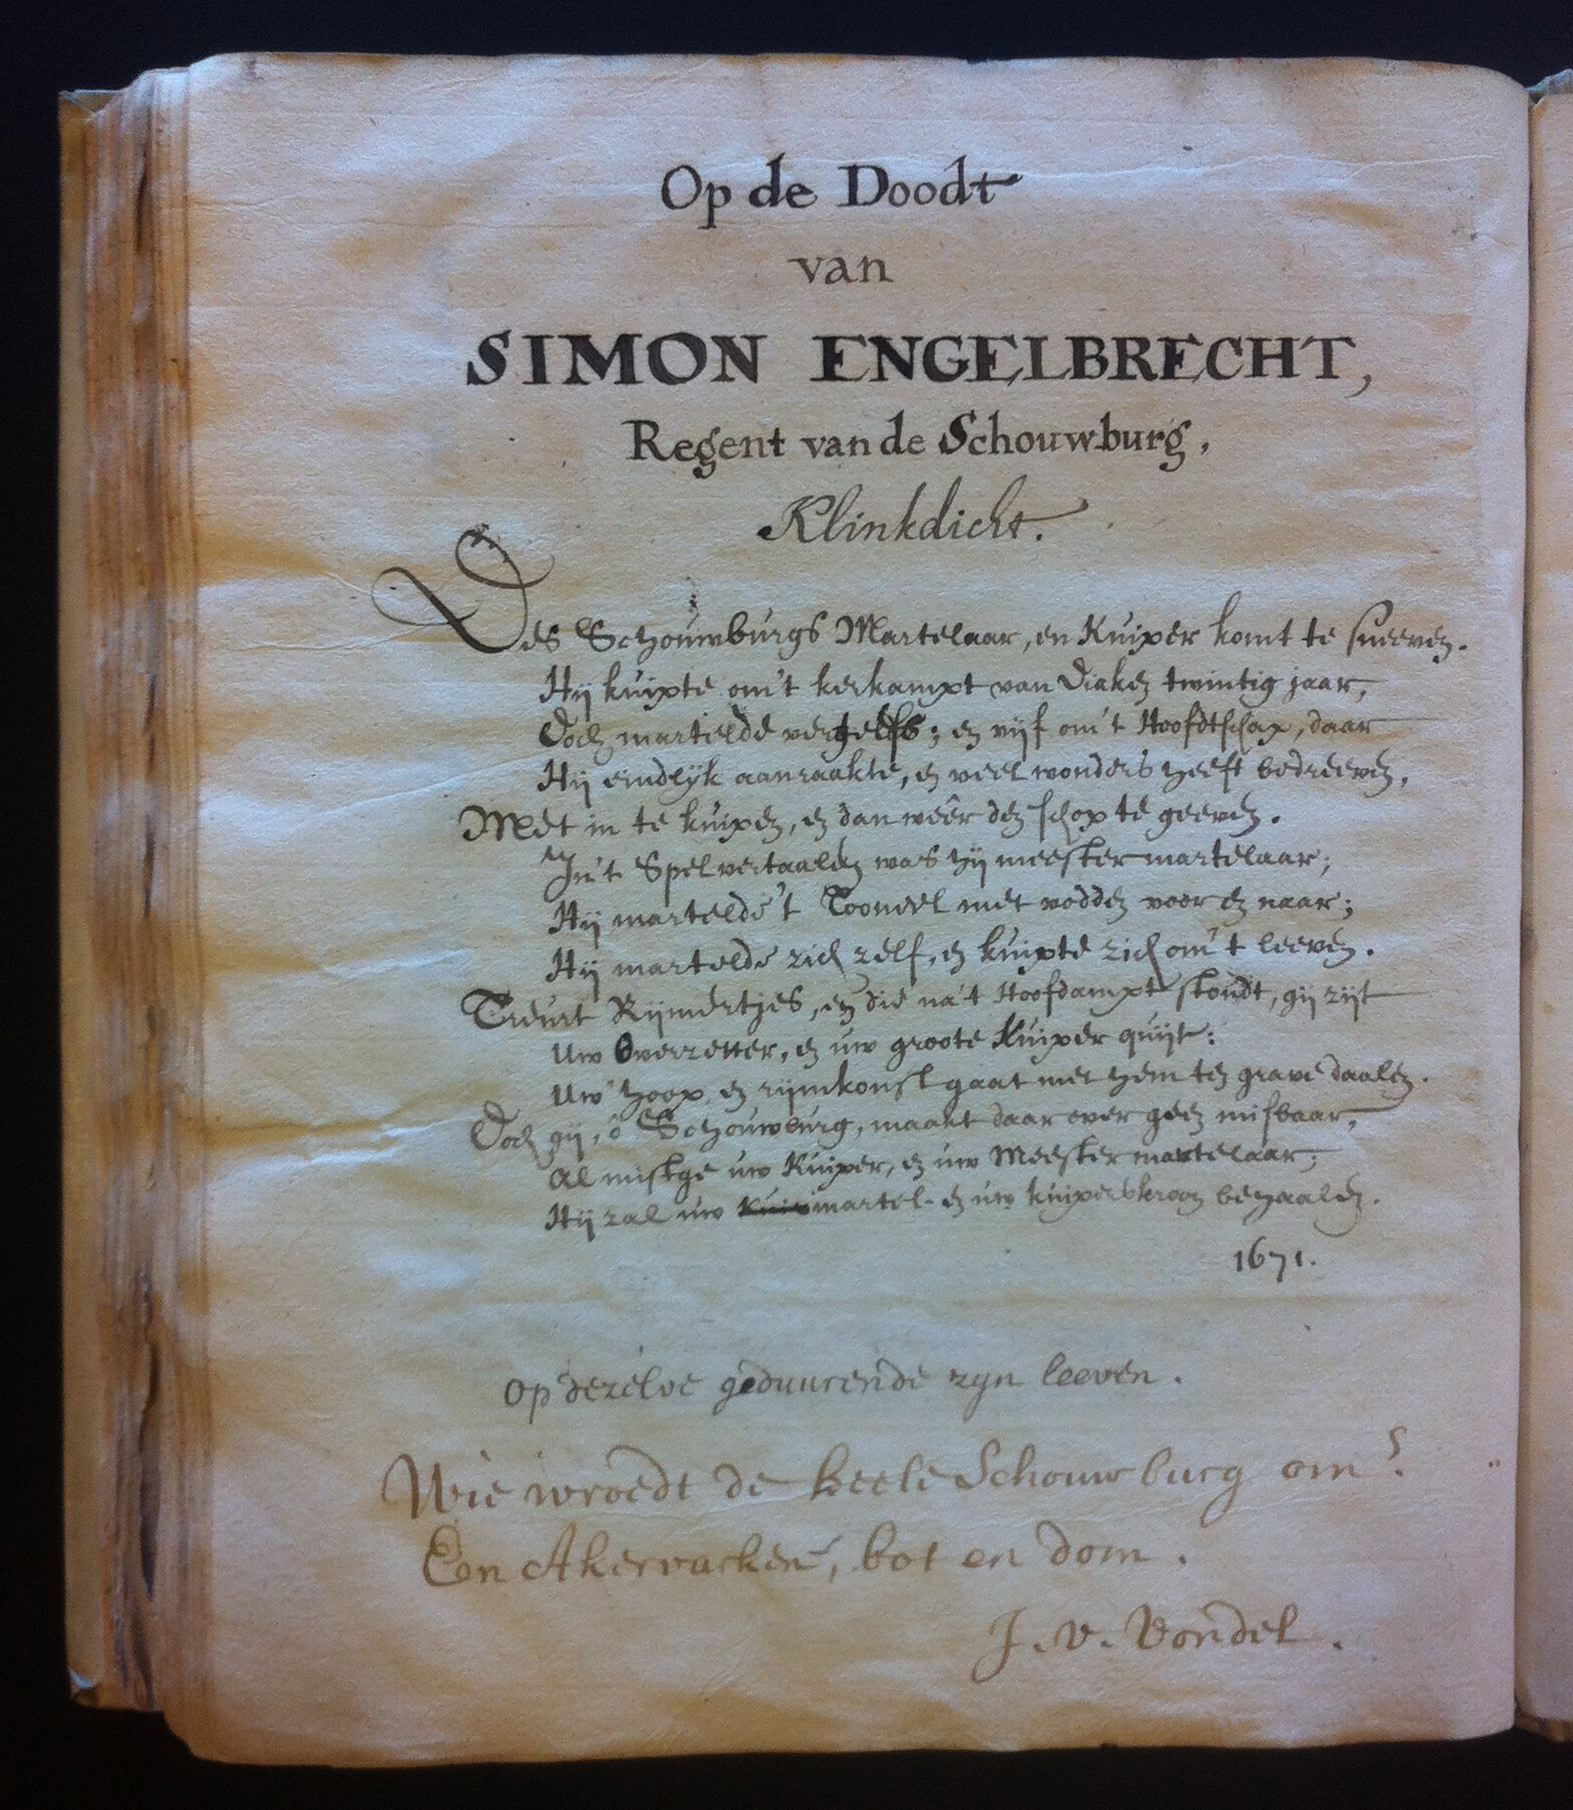 Op de Doodt
van
SIMON ENGELBRECHT,
Regent van de Schouwburg.
Klinkdicht.
Des Schouwburgs Martelaar, en Kuiper komt te sneeven.
Hij kuipte om't kerkampt van Diaken twintig jaar,
Doch martelde vergeefs; en vijf om't Hoofdtschap, daar
Hij eindlyk aanraakte, en veel wonders heeft bedreeven,
Met in te kuipen, en dan weêr den schop te geeven.
In't Spelvertaalen was hij meester martelaar;
Hij martelde 't Tooneel met vodden voor en naar;
Hij martelde zich zelf, en kuipte zich om't leeven.
Treurt Rijmertjes, en die na't Hoofdampt stondt, gij zijt
Uw Overzetter, en uw groote Kuiper quijt:
Uw hoop en rijmkonst gaat met hem ten grave daalen.
Doch gij, ô Schouwburg, maakt daar over geen misbaar,
Al mistge uw Kuiper, en uw Meester martelaar;
Hij zal uw martel- en uw kuiperskroon behaalen.
1671.
Op dezelve geduurende zyn leeven.
Wie wroedt de heele Schouwburg om?
Een Akervarken, bot en dom.
J. v. Vondel.